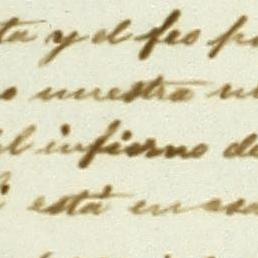 ta y el feo p
o nuestra
el infierno de
está en esa